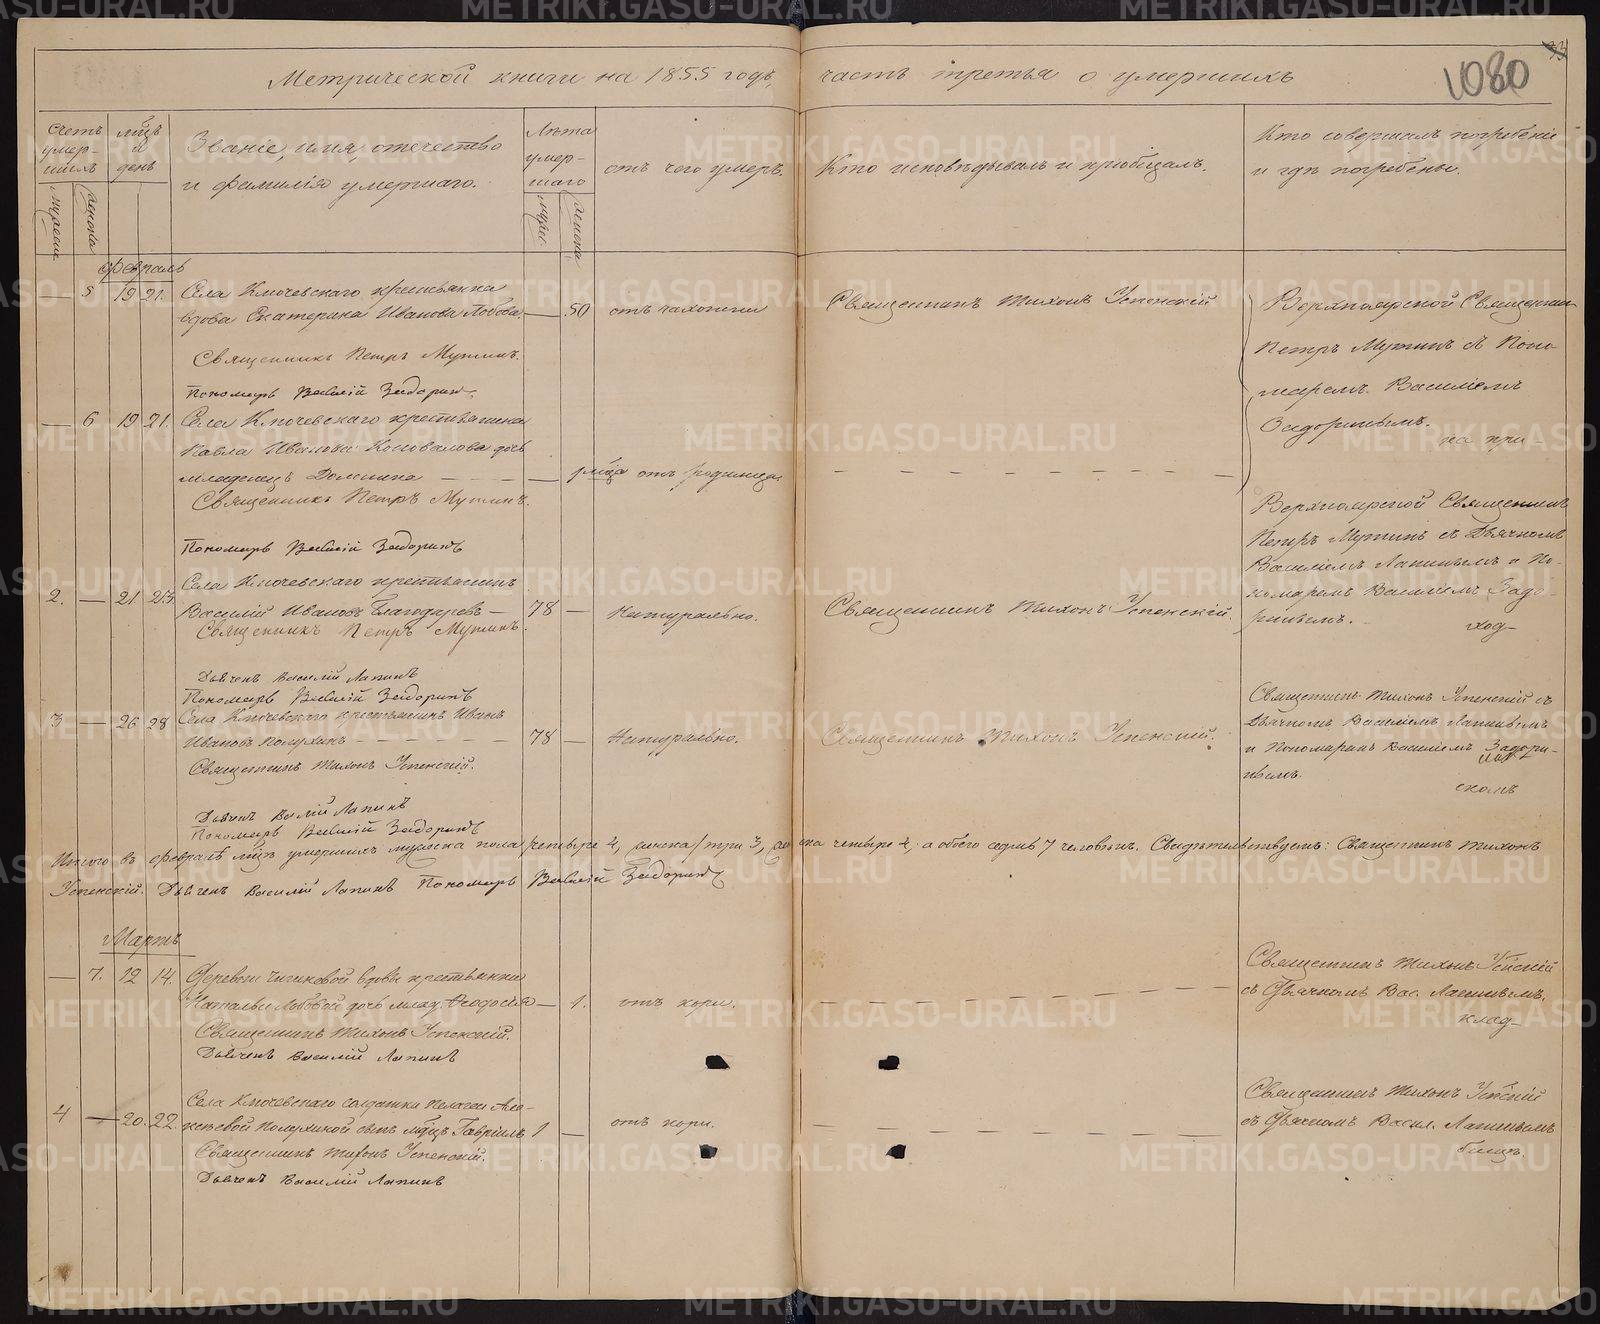 Метрической книги на 1855 годъ, часть третья о умершихъ
33
1080
Счетъ умер-шихъ
мужеска
женска
мцъ и день
Званіе, имя, отечество
и фамилія умершаго.
Лѣта
умер-
шаго
мужес.
женска
отъ чего умеръ.
Кто исповѣдывалъ и пріобщалъ.
Кто совершалъ погребеніе
и гдѣ погребены.
Февраль
— 5 19 21. Села Ключевскаго крестьянка
вдова Екатерина Иванова Лобова. — 50 отъ чахотки
Священникъ Тихонъ Успенскій
Священникъ Петръ Мутинъ.
Пономарь Василій Задоринъ.
Верхнеярской Священникъ
Петръ Мутинъ съ Поно-
маремъ Василіемъ
Задоринымъ.
на при-
— 6 19 21. Села Ключевскаго крестьянина
Павла Иванова Коновалова дочь
младенецъ Домнина — — мца отъ родимца
Священникъ Петръ Мутинъ.
Пономарь Василій Задоринъ
Верхнеярской Священникъ
Петръ Мутинъ съ Дьячкомъ
Василіемъ Лапинымъ и По-
номаремъ Василіемъ Задо-
ринымъ.
ход-
2. — 21 23. Села Ключевскаго крестьянинъ
Василій Ивановъ Благодаревъ — 78 — Натурально.
Священникъ Тихонъ Успенскій.
Священникъ Петръ Мутинъ.
Дьячекъ Василій Лапинъ
Пономарь Василій Задоринъ
3 — 26 28 Села Ключевскаго крестьянинъ Иванъ
Ивановъ Полухинъ — — — 78 — Натурально.
Священникъ Тихонъ Успенскій.
Священникъ Тихонъ Успенскій.
Дьячекъ Василій Лапинъ
Пономарь Василій Задоринъ
Священникъ Тихонъ Успенскій съ
Дьячкомъ Василіемъ Лапинымъ
и Пономаремъ Василіемъ Задори-
нымъ.
скомъ
Итого въ февралѣ мцѣ умершихъ мужеска пола четыре 4, женска три 3, а обоего седмь 7 человѣкъ. Свидѣтельствуетъ: Священникъ Тихонъ
Успенскій. Дьячекъ Василій Лапинъ Пономарь Василій Задоринъ
Мартъ
— 7. 12 14. Деревни Чигиновой вдовы крестьянки
Натальи Лобовой дочь млад. Ѳеодосія — 1. отъ кори.
Священникъ Тихонъ Успенскій.
Дьячекъ Василій Лапинъ
Священникъ Тихонъ Успскій
съ Дьячкомъ Вас. Лапинымъ.
клад-
4 — 20. 22. Села Ключевскаго солдатки Пелагеи Але-
ксѣевой Полухиной сынъ млцъ Гавріилъ 1 — отъ кори.
Священникъ Тихонъ Успенскій.
Дьячекъ Василій Лапинъ
Священникъ Тихонъ Успскій
съ Дьячкомъ Васил. Лапинымъ
бищѣ.
METRIKI.GASO-URAL.RU